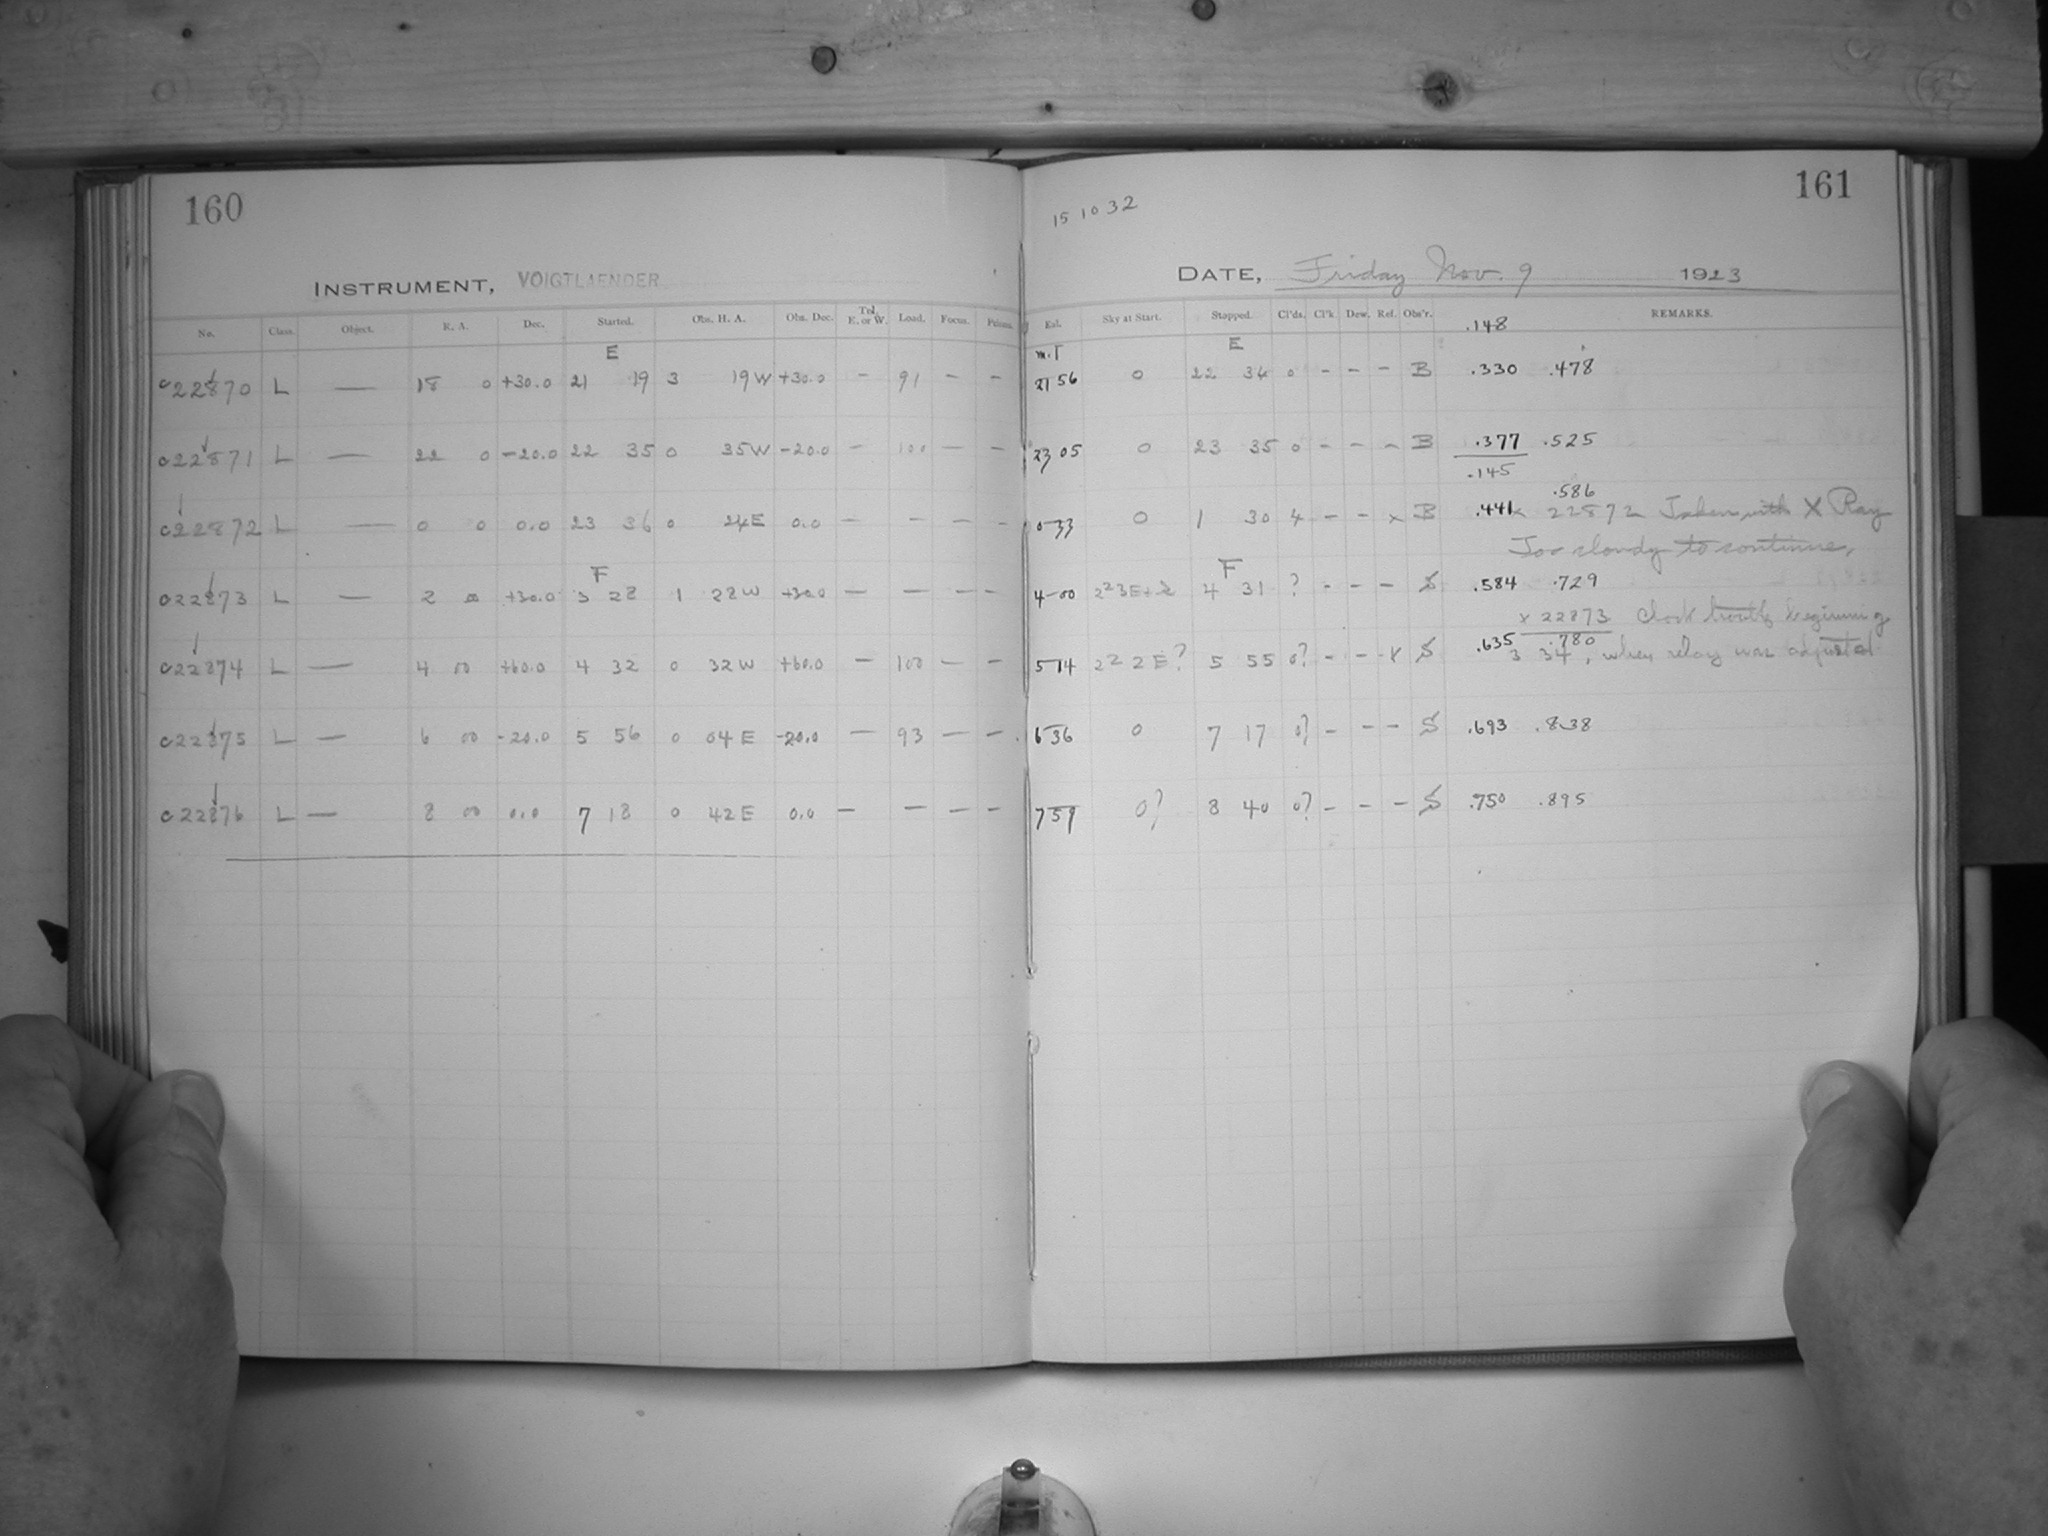 160
INSTRUMENT, VOIGTLAENDER
No. Class. Object. R. A. Dec. Started. Obs. H. A. Obs. Dec. Tel. E. or W. Load. Focus.
E
c22870 L — 18 0 +30.0 21 19 3 19W +30.0 — 91 — —
c22871 L — 22 0 -20.0 22 35 0 35W -20.0 — 100 — —
c22872 L — 0 0 0.0 23 36 0 24E 0.0 — — — —
F
c22873 L — 2 00 +30.0 3 28 1 28W +30.0 — — — —
c22874 L — 4 00 +60.0 4 32 0 32W +60.0 — 100 — —
c22875 L — 6 00 -20.0 5 56 0 04E -20.0 — 93 — —
c22876 L — 8 00 0.0 7 18 0 42E 0.0 — — — —
161
15 10 32
DATE, Friday Nov. 9 1923
Sky at Start. Stopped. Cl'ds. Cl'k Dew. Ref. Obs'r. REMARKS.
.148
m.T E
21 56 0 22 34 0 - - - B .330 .478
23 05 0 23 35 0 - - - B .377 .525
.145
.586
0 33 0 1 30 4 - - x B .441 x 22872 Taken with X Ray
Too cloudy to continue.
F
4 00 4 31 ? - - - S .584 .729
x 22873 Clock trouble beginning
5 14 2 2 2 E? 5 55 0? - - x S .635 .780
3 34, when relay was adjusted
6 36 0 7 17 0? - - - S .693 .838
7 59 0? 8 40 0? - - - S .750 .895